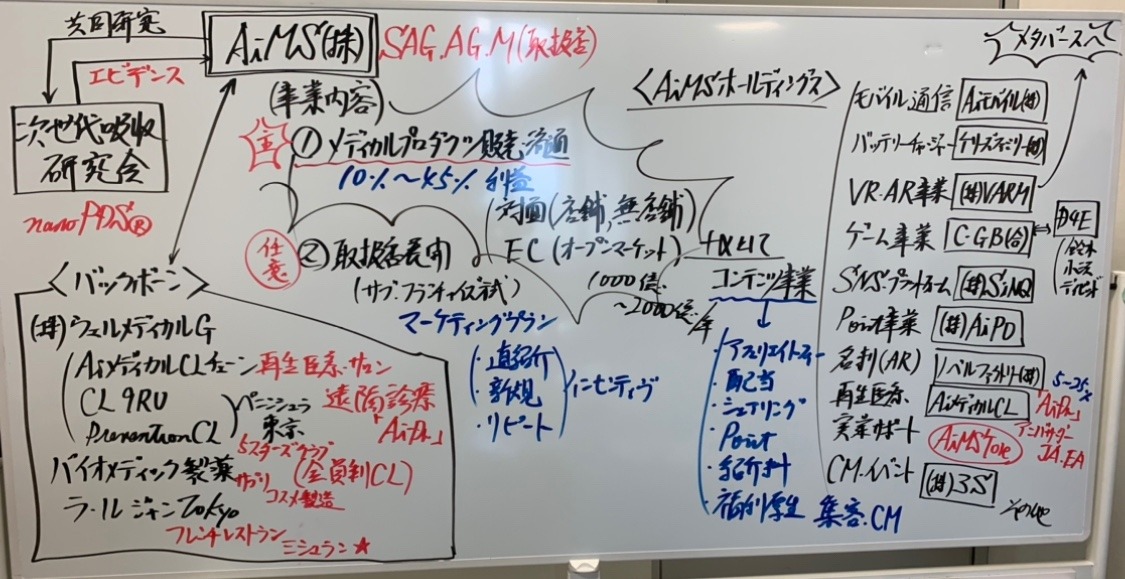 共同研究
AiMS(株)
SAG.AG.M(取扱店)
エビデンス
次世代吸収
研究会
nanoPDS®
(事業内容)
主
①メディカルプロダクツ販売・流通
10%～45% 利益
対面(店舗,無店舗)
EC(オープンマーケット)
任意
②取扱店展開
(サブ・フランチャイズ式)
マーケティングプラン
・直紹介
・新規
・リピート
インセンティヴ
1000億
～2000億/年
+αとして
コンテンツ事業
・アフェリエイトフィー
・配当
・シェアリング
・Point
・紹介料
・福利厚生
集客.CM
<バックボーン>
(株)ウェルメディカルG
AiメディカルCLチェーン 再生医療・サロン
CL 9RU
PreventionCL
ペニンシュラ
東京
遠隔診療
「AiDr.」
5スターズクラブ
(会員制CL)
バイオメディック製薬
サプリ
コスメ製造
ラ・ール ジャン Tokyo
フレンチレストラン
ミシュラン★
<AiMSホールディングス>
メタバースへ
モバイル通信 Aiモバイル(株)
バッテリーチャージャー
VR・AR事業 (株)VARM
ゲーム事業 C・G・B(合)
D4E
SNS・プラットホーム (株)SiNQ
Point事業 (株)AiPO
名刺(AR) ノベルファクトリー(株)
再生医療 AiメディカルCL
「AiDr.」
5~25%
実業サポート AiMSTore
アンバサダー
JA.EA
CM.イベント (株)3S
その他